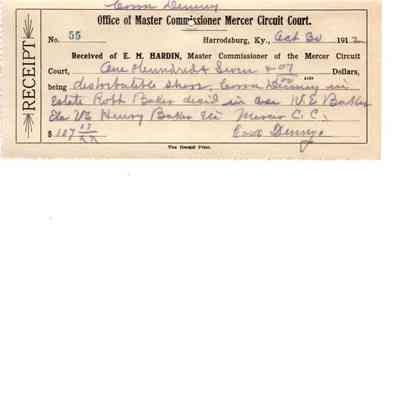 Cora Denny
Office of Master Commissioner Mercer Circuit Court.
RECEIPT
No. 55 Harrodsburg, Ky., Oct 30 1912
Received of E. M. HARDIN, Master Commissioner of the Mercer Circuit
Court, One Hundred & Seven & 07 Dollars,
being distributable share, Cora Denny in
Estate Robt Baker decd in case W. E. Baker
Etc VS Henry Baker Etc Mercer C. C.
$ 107 Cora Denny
The Herald Print.